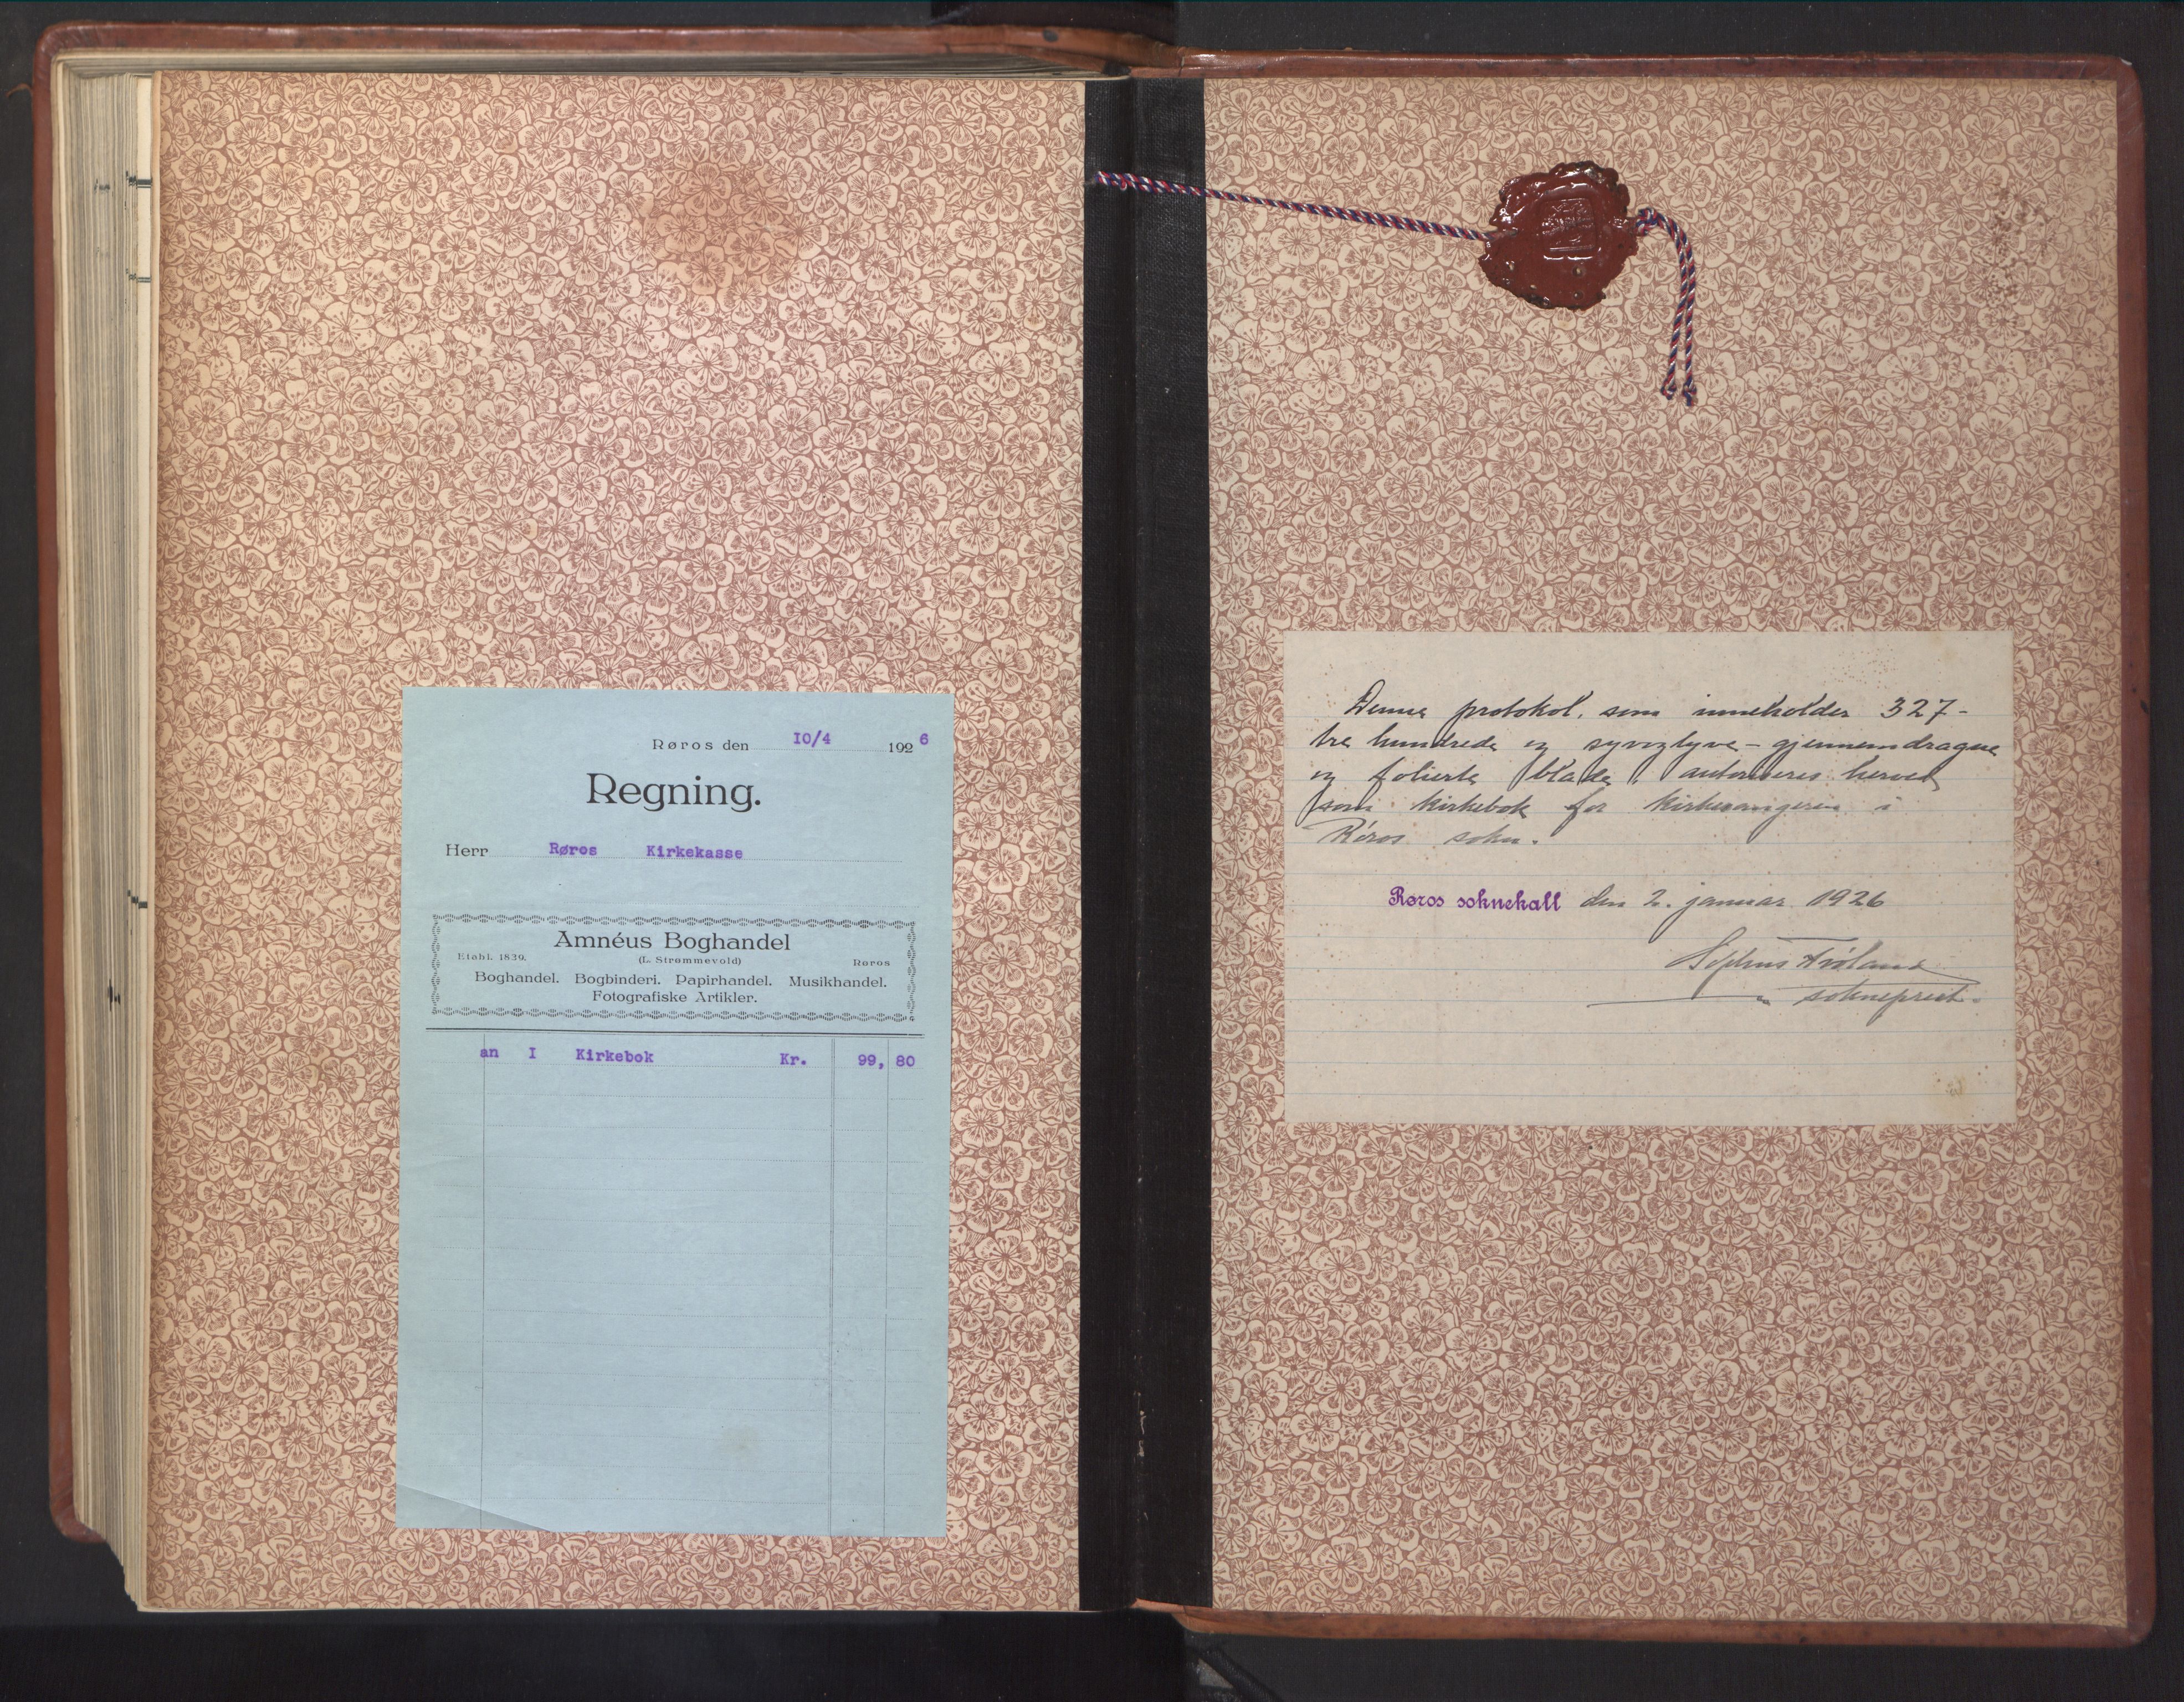 Røros den 10/4 1926
Regning.
Herr Røros Kirkekasse
Amnéus Boghandel
Etabl. 1839. (L. Strømmevold) Røros
Boghandel. Bogbinderi. Papirhandel. Musikhandel.
Fotografiske Artikler.
an I Kirkebok Kr. 99,80
Denne protokol, som inneholder 327 -
tre hundrede og syvogtyve - gjennemdragne
og folierte blade, autoriseres herved
som kirkebok for kirkesangeren i
Røros sokn.
Røros soknekall den 2. januar 1926
Sophus
sokneprest.